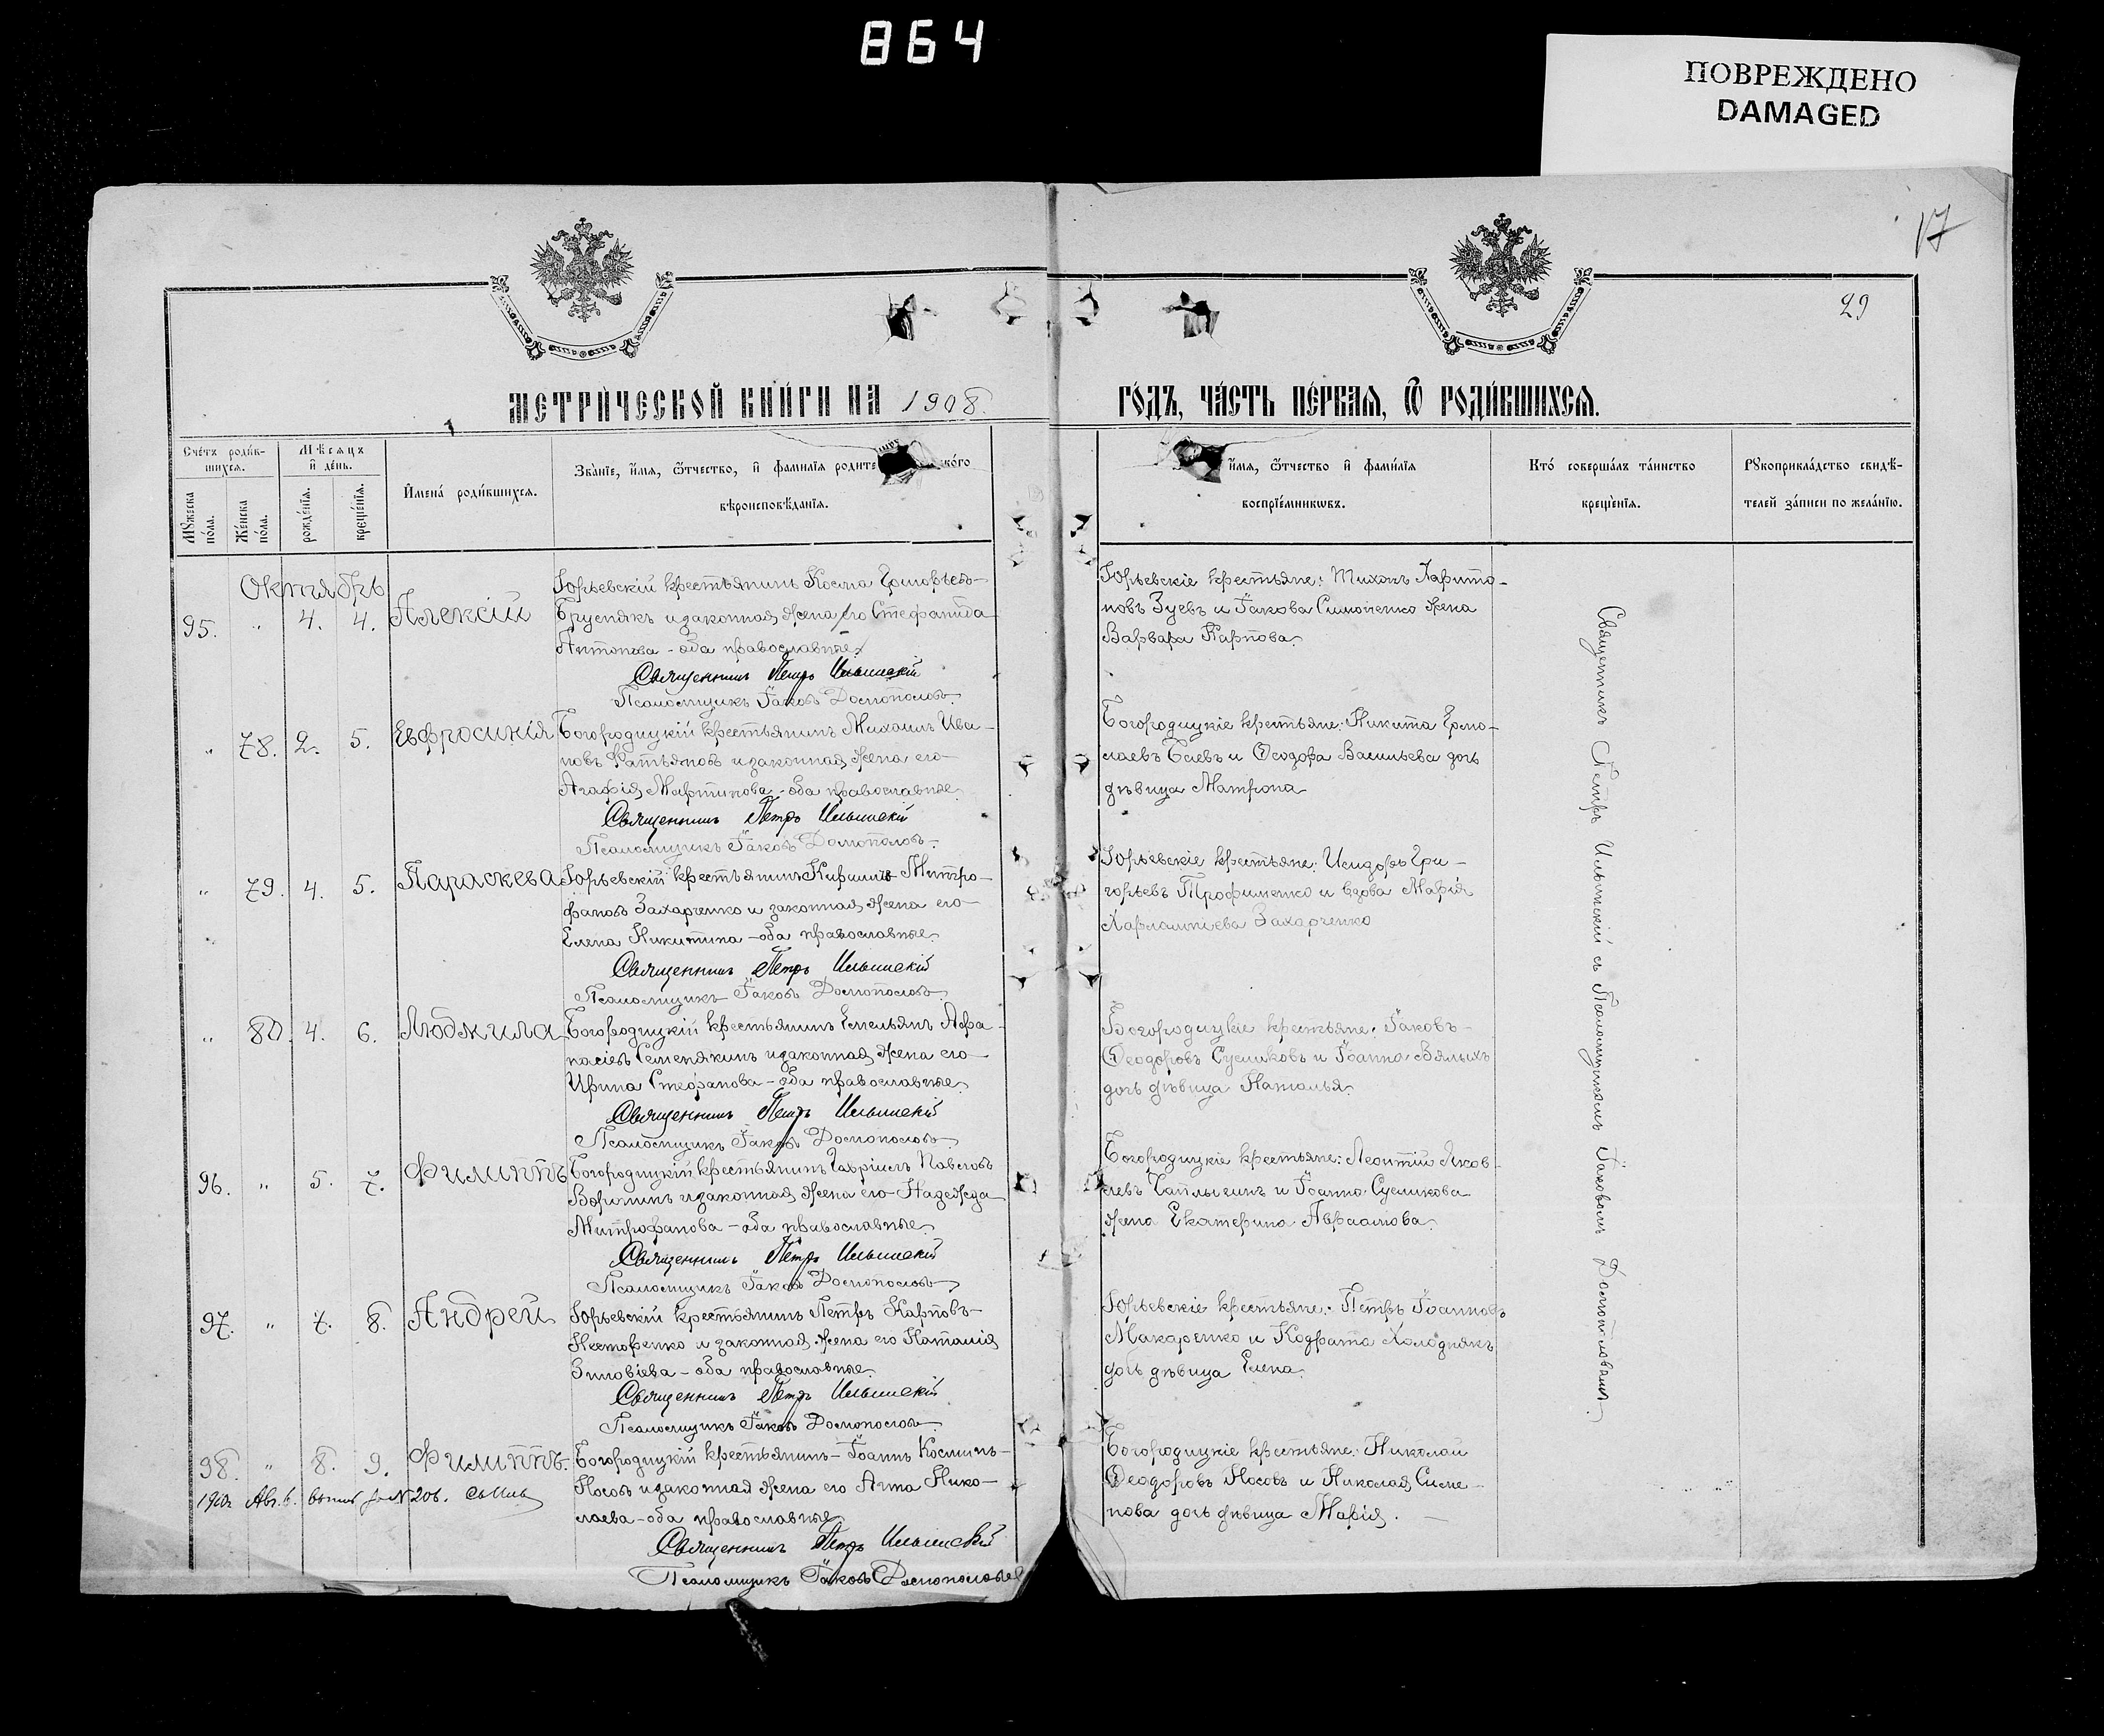 864
ПОВРЕЖДЕНО
DAMAGED
17
29
МЕТРИ́ЧЕСКОЙ КНИ́ГИ НА 1908 ГО́ДЪ, ЧА́СТЬ ПЕ́РВАЯ, Ѿ РОДИ́ВШИХСЯ.
Сче́тъ роди́в-
шихся.
Мѣ́сяцъ
и҆ де́нь.
Мꙋ́жеска по́ла.
Же́нска по́ла.
рожде́нїя.
креще́нїя.
И҆мена́ роди́вшихся.
Зва́нїе, и҆́мя, ѻ҆́тчество, и҆ фами́лїя родите ко́го
вѣроисповѣ́данїя.
и҆́мя, ѻ҆́тчество и҆ фами́лїя
воспрїе́мникѡвъ.
Кто́ соверша́лъ та́инство
креще́нїя.
Рꙋкоприкла́дство свидѣ́-
телей за́писи по жела́нїю.
Октябрь
95. " 4. 4. Алексій
Юрьевскій крестьянинъ Косма Григорьевъ
Бруснякъ и законная жена его Стефанида
Антонова - оба православные.
Священникъ Петръ Ильинскій
Псаломщикъ Іаковъ Доспополовъ.
Юрьевскіе крестьяне: Тихонъ Харито-
новъ Зуевъ и Іакова Симоненко жена
Варвара Карпова.
" 78. 2. 5. Евфросинія
Богородицкій крестьянинъ Михаилъ Ива-
новъ Фатьяновъ и законная жена его
Агафія Мартинова - оба православные.
Священникъ Петръ Ильинскій
Псаломщикъ Іаковъ Доспополовъ.
Богородицкіе крестьяне: Никита Ермо-
лаевъ Баевъ и Ѳеодора Васильева дочь
дѣвица Матрона
" 79. 4. 5. Параскева
Юрьевскій крестьянинъ Кириллъ Митро-
фановъ Захарченко и законная жена его
Елена Никитина - оба православные.
Священникъ Петръ Ильинскій
Псаломщикъ Іаковъ Доспополовъ.
Юрьевскіе крестьяне: Исидоръ Гри-
горьевъ Трофименко и вдова Марія
Харлампіева Захарченко
" 80. 4. 6. Людмила
Богородицкій крестьянинъ Емельянъ Афа-
насіевъ Семенякинъ и законная жена его
Ирина Стефанова - оба православные.
Священникъ Петръ Ильинскій
Псаломщикъ Іаковъ Доспополовъ
Богородицкіе крестьяне: Іаковъ
Ѳеодоровъ Сусликовъ и Іоанна Бялыхъ
дочь дѣвица Наталья.
96. " 5. 7. Филиппъ
Богородицкій крестьянинъ Гавріилъ Павловъ
Воронинъ и законная жена его Надежда
Митрофанова - оба православные.
Священникъ Петръ Ильинскій
Псаломщикъ Іаковъ Доспополовъ
Богородицкіе крестьяне: Леонтій Яков-
левъ Чаплыгинъ и Іоанна Сусликова
жена Екатерина Авраамова.
97. " 7. 8. Андрей
Юрьевскій крестьянинъ Петръ Карповъ
Несторенко и законная жена его Наталія
Зиновіева - оба православные.
Священникъ Петръ Ильинскій
Псаломщикъ Іаковъ Доспополовъ
Юрьевскіе крестьяне: Петръ Іоанновъ
Макаренко и Кодрата Холоднякъ
дочь дѣвица Елена.
98. " 8. 9. Филиппъ.
Богородицкій крестьянинъ Іоаннъ Косминъ
Носовъ и законная жена его Анна Нико-
лаева - оба православные.
Священникъ Петръ Ильинскій
Псаломщикъ Іаковъ Доспополовъ
Богородицкіе крестьяне: Николай
Ѳеодоровъ Носовъ и Николая Симе-
нова дочь дѣвица Марія.
Авг. 6. № 206.
Священникъ Петръ Ильинскій съ Псаломщикомъ Іаковомъ Доспополовымъ.